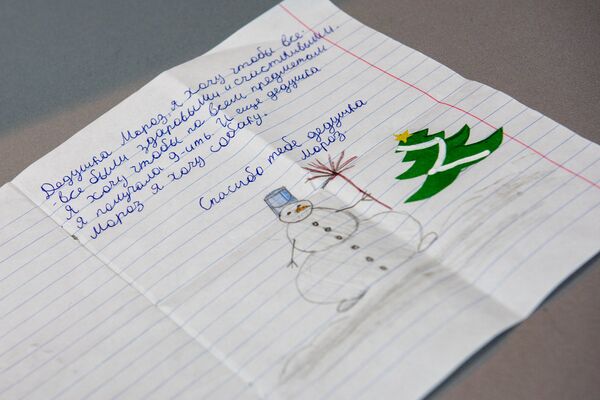 Дедушка Мороз, я хочу чтобы все
все были здоровыми и счастливыми.
Я хочу чтобы по всем предметам
я получала 9-ить. И ещё дедушка
Мороз я хочу собаку.
Спасибо тебе дедушка
мороз